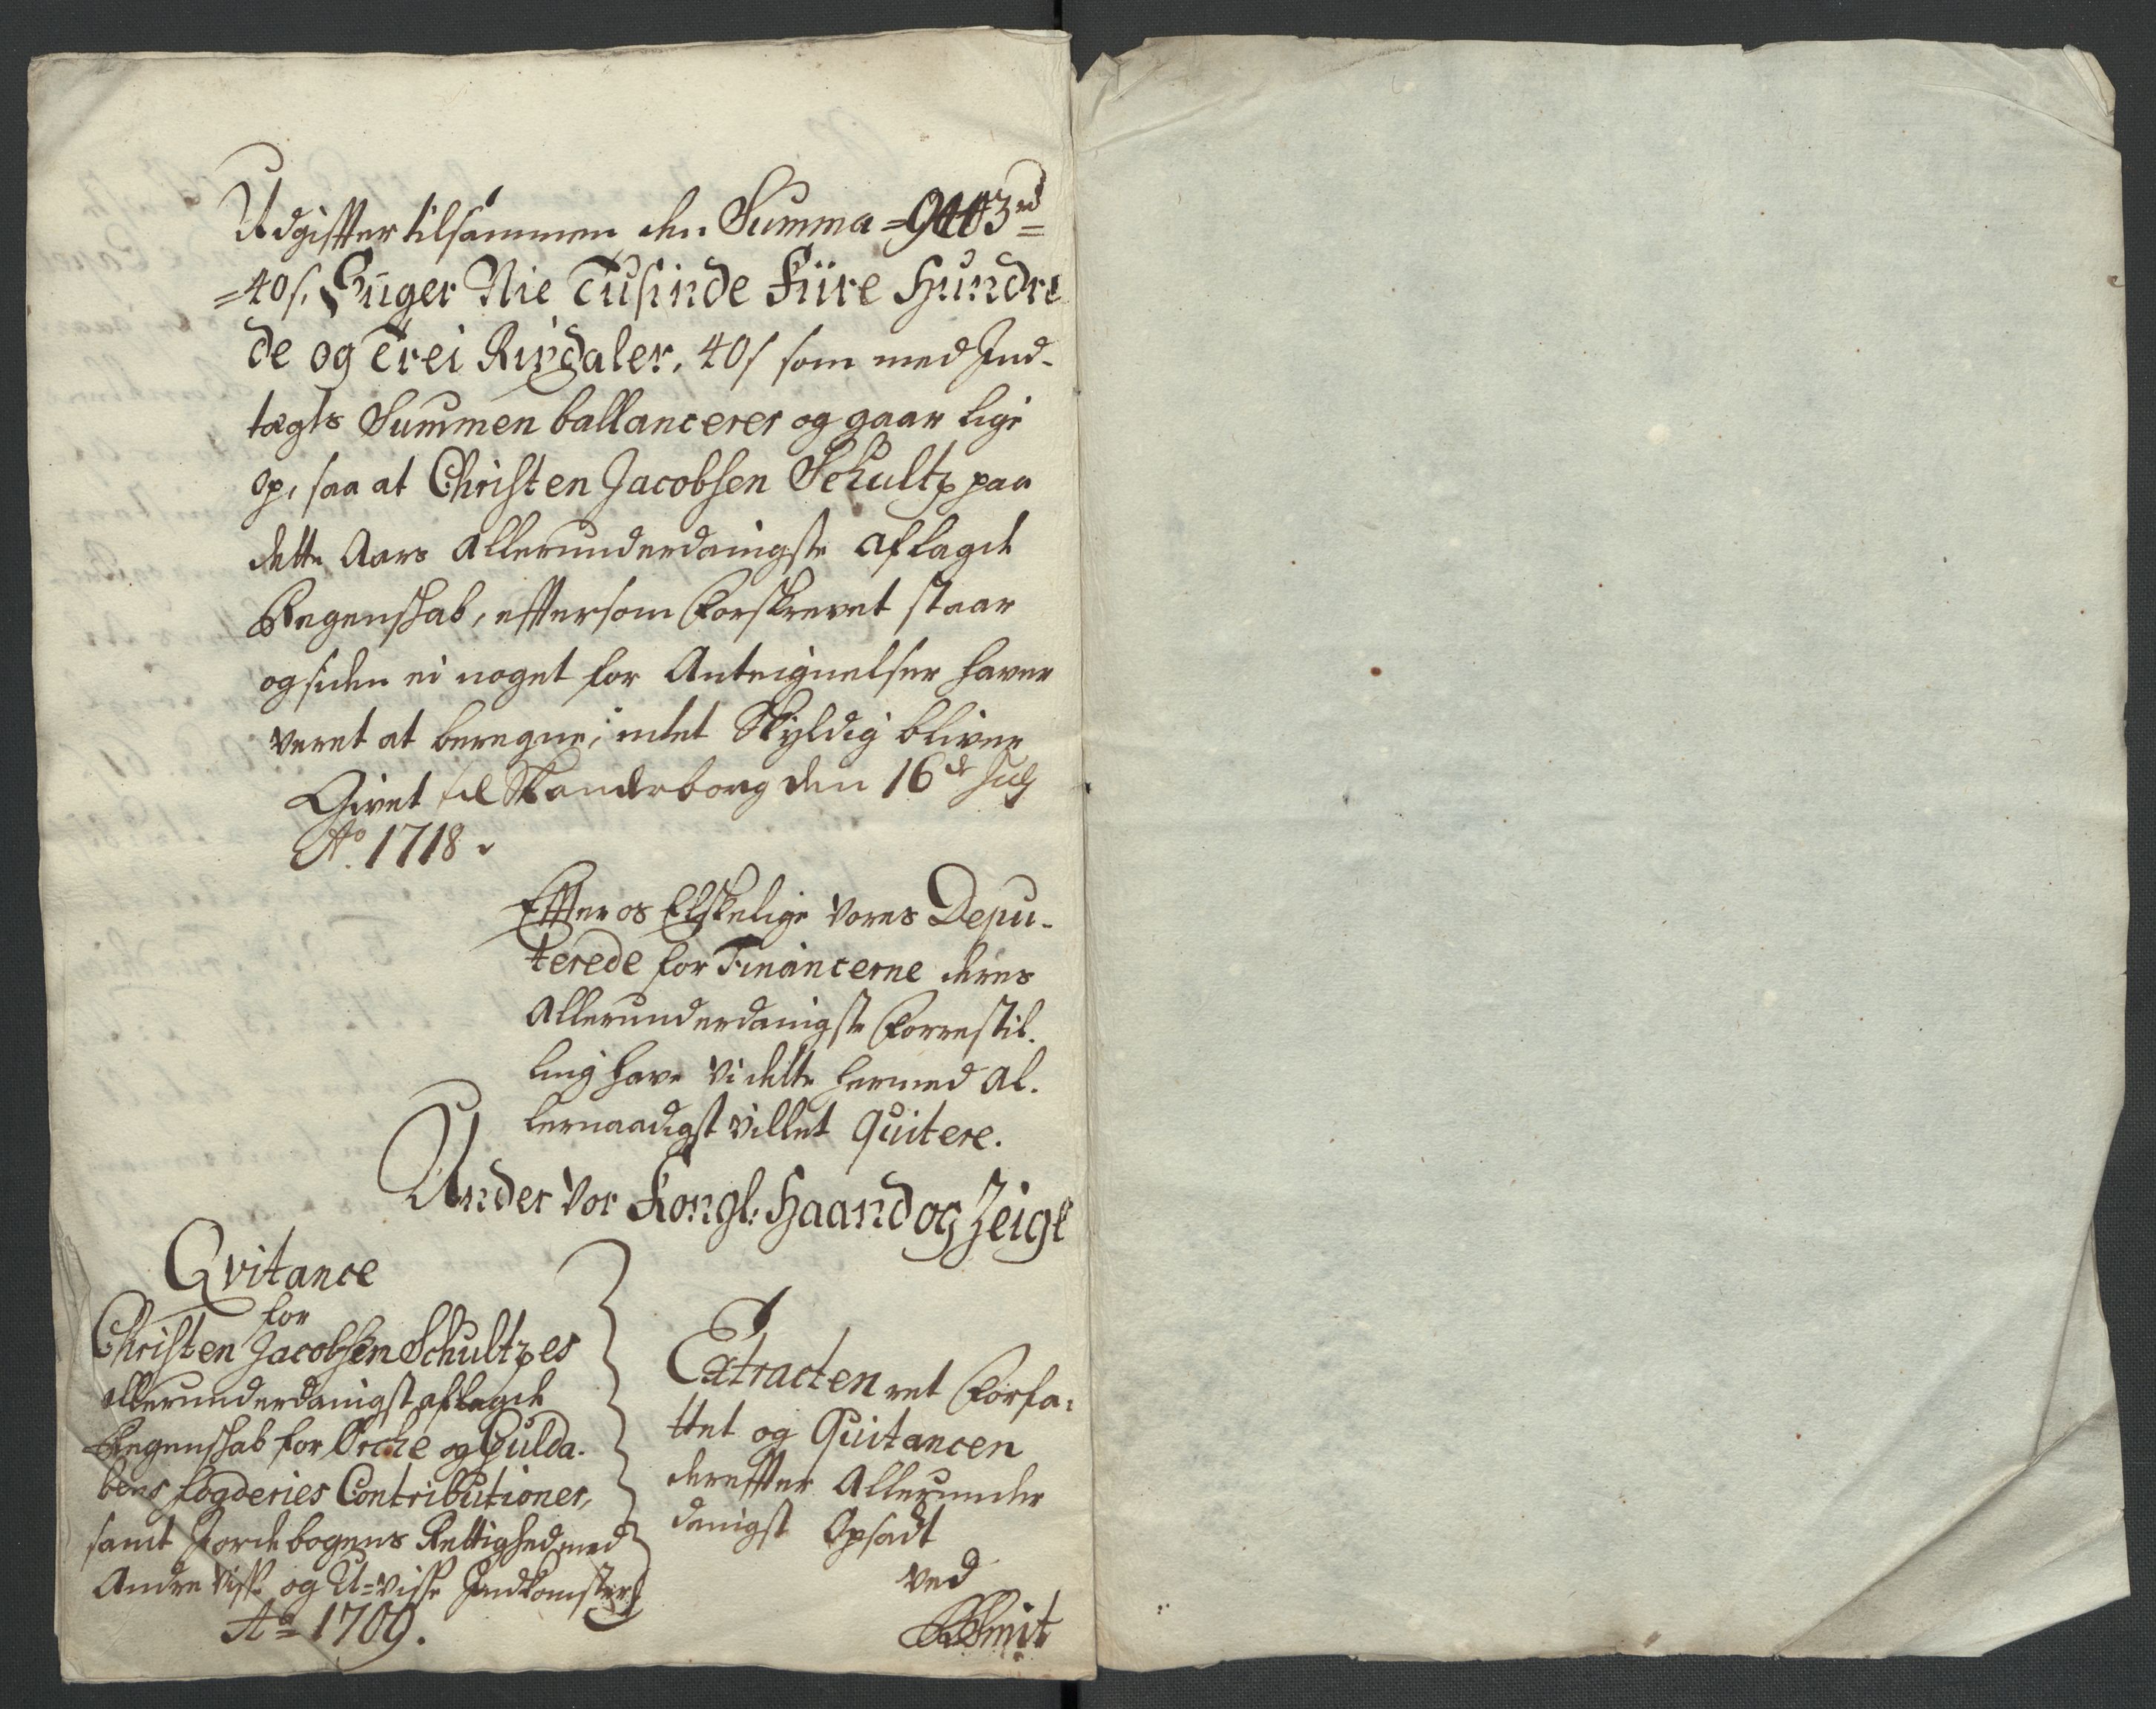 Udgiffter tilsammen den Summa =9403 rd=
=40 s. Siiger Nie Tusinde Fiire Hundre
de og Trei Rixdaler, 40 s som med Ind-
tægts Summen ballancerer og gaar lige
op, saa at Christen Jacobsen Schultz paa
dette Aars allerunderdanigste aflagde
Regenskab, efftersom Forskrevet staar
og siden ei noget for Anteignelser haver
veret at beregne, intet Skyldig bliver
Givet til Skanderborg den 16de July
Ao. 1718.
Effter os Elskelige vores Depu-
terede for Financerne deres
allerunderdanigste Forrestil-
ling have Vi dette hermed al-
lernaadigst villet quitere.
Under Vor Kongl: Haand og Zeigl
Qvitance
for
Christen Jacobsen Schultzes
allerunderdanigst aflagde
Regenskab for Orche og Gulda-
lens fogderies Contributioner,
samt Jordebogens Rettighed med
Andre Visse og U=visse Indkomster
Ao= 1709.
Extracten ret Forfa-
ttet og Quitancen
dereffter Allerunder
danigst Opsadt
ved
Smit